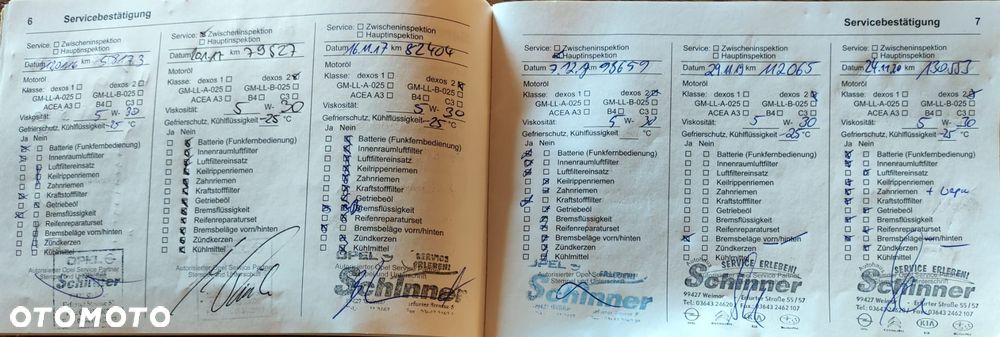 6
Servicebestätigung
Service: Zwischeninspektion
Hauptinspektion
Datum km
Motoröl
Klasse: dexos 1 dexos 2
GM-LL-A-025 GM-LL-B-025
ACEA A3 B4 C3
Viskosität: 5 W- 30
Gefrierschutz, Kühlflüssigkeit -25 °C
Ja Nein
Batterie (Funkfernbedienung)
Innenraumluftfilter
Luftfiltereinsatz
Keilrippenriemen
Zahnriemen
Kraftstofffilter
Getriebeöl
Bremsflüssigkeit
Reifenreparaturset
Bremsbeläge vorn/hinten
Zündkerzen
Kühlmittel
OPEL
Autorisierter Opel Service Partner
Stempel und Unterschrift
Schinner
Erfurter Straße
Service: Zwischeninspektion
Hauptinspektion
Datum km 79827
Motoröl
Klasse: dexos 1 dexos 2
GM-LL-A-025 GM-LL-B-025
ACEA A3 B4 C3
Viskosität: 5 W- 30
Gefrierschutz, Kühlflüssigkeit -25 °C
Ja Nein
Batterie (Funkfernbedienung)
Innenraumluftfilter
Luftfiltereinsatz
Keilrippenriemen
Zahnriemen
Kraftstofffilter
Getriebeöl
Bremsflüssigkeit
Reifenreparaturset
Bremsbeläge vorn/hinten
Zündkerzen
Kühlmittel
Autorisierter Opel Service Partner
Stempel und Unterschrift
Service: Zwischeninspektion
Hauptinspektion
Datum 16.11.17 km 82404
Motoröl
Klasse: dexos 1 dexos 2
GM-LL-A-025 GM-LL-B-025
ACEA A3 B4 C3
Viskosität: 5 W- 30
Gefrierschutz, Kühlflüssigkeit -25 °C
Ja Nein
Batterie (Funkfernbedienung)
Innenraumluftfilter
Luftfiltereinsatz
Keilrippenriemen
Zahnriemen
Kraftstofffilter
Getriebeöl
Bremsflüssigkeit
Reifenreparaturset
Bremsbeläge vorn/hinten
Zündkerzen
Kühlmittel
OPEL
SERVICE
ERLEBEN!
Autorisierter Opel
Schinner
Erfurter Strasse
Servicebestätigung
7
Service: Zwischeninspektion
Hauptinspektion
Datum km 98659
Motoröl
Klasse: dexos 1 dexos 2
GM-LL-A-025 GM-LL-B-025
ACEA A3 B4 C3
Viskosität: 5 W- 30
Gefrierschutz, Kühlflüssigkeit °C
Ja Nein
Batterie (Funkfernbedienung)
Innenraumluftfilter
Luftfiltereinsatz
Keilrippenriemen
Zahnriemen
Kraftstofffilter
Getriebeöl
Bremsflüssigkeit
Reifenreparaturset
Bremsbeläge vorn/hinten
Zündkerzen
Kühlmittel
Schinner
Service: Zwischeninspektion
Hauptinspektion
Datum 29.11.19 km 112065
Motoröl
Klasse: dexos 1 dexos 2
GM-LL-A-025 GM-LL-B-025
ACEA A3 B4 C3
Viskosität: 5 W- 30
Gefrierschutz, Kühlflüssigkeit -25 °C
Ja Nein
Batterie (Funkfernbedienung)
Innenraumluftfilter
Luftfiltereinsatz
Keilrippenriemen
Zahnriemen
Kraftstofffilter
Getriebeöl
Bremsflüssigkeit
Reifenreparaturset
Bremsbeläge vorn/hinten
Zündkerzen
Kühlmittel
SERVICE ERLEBEN!
Schinner
99427 Weimar Erfurter Straße 55/57
Tel.: 03643 2462107
KIA
Service: Zwischeninspektion
Hauptinspektion
Datum km 130553
Motoröl
Klasse: dexos 1 dexos 2
GM-LL-A-025 GM-LL-B-025
ACEA A3 B4 C3
Viskosität: 5 W- 30
Gefrierschutz, Kühlflüssigkeit -25 °C
Ja Nein
Batterie (Funkfernbedienung)
Innenraumluftfilter
Luftfiltereinsatz
Keilrippenriemen
Zahnriemen
Kraftstofffilter
Getriebeöl
Bremsflüssigkeit
Reifenreparaturset
Bremsbeläge vorn/hinten
Zündkerzen
Kühlmittel
SERVICE ERLEBEN!
Schinner
99427 Weimar Erfurter Straße 55/57
Tel.: 03643 2462107
KIA
OTOMOTO